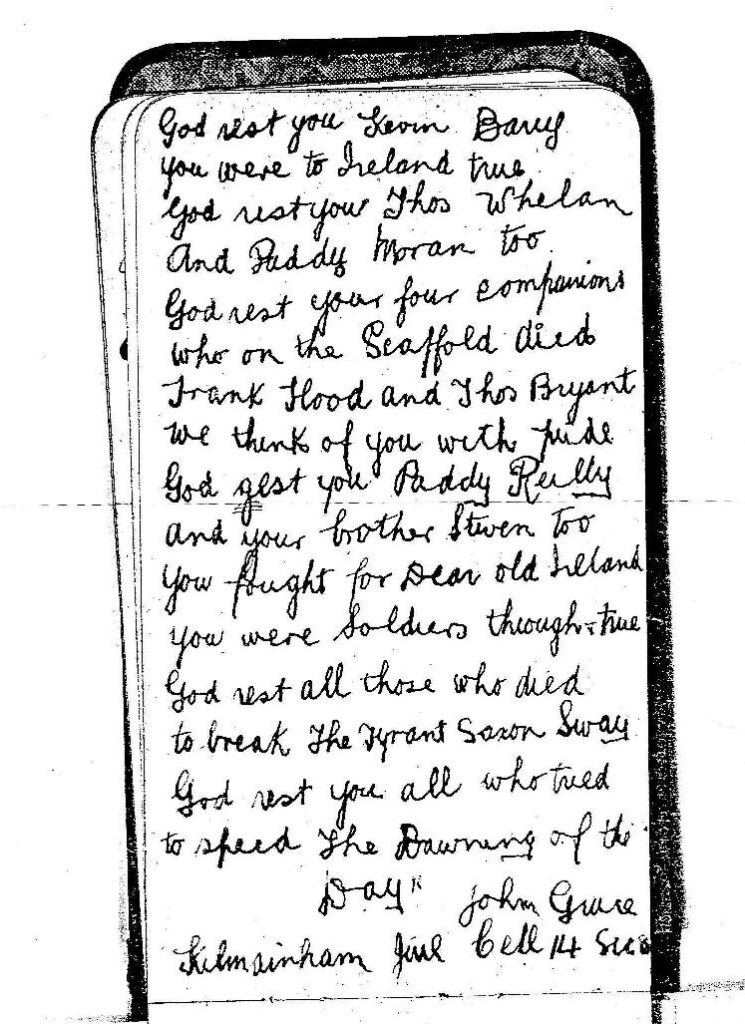 God rest you Kevin Barry
you were to Ireland true
God rest you Thos Whelan
And Paddy Moran too
God rest your four companions
who on the Scaffold died
Frank Flood and Thos Bryant
we think of you with pride
God gest you Paddy Reilly
and your brother Steven too
you fought for Dear old Ireland
you were Soldiers through & true
God rest all those who died
to break The Tyrant Saxon Sway
God rest you all who tried
to speed The Dawning of the
Day"
John Grace
Kilmainham Jail Cell 14